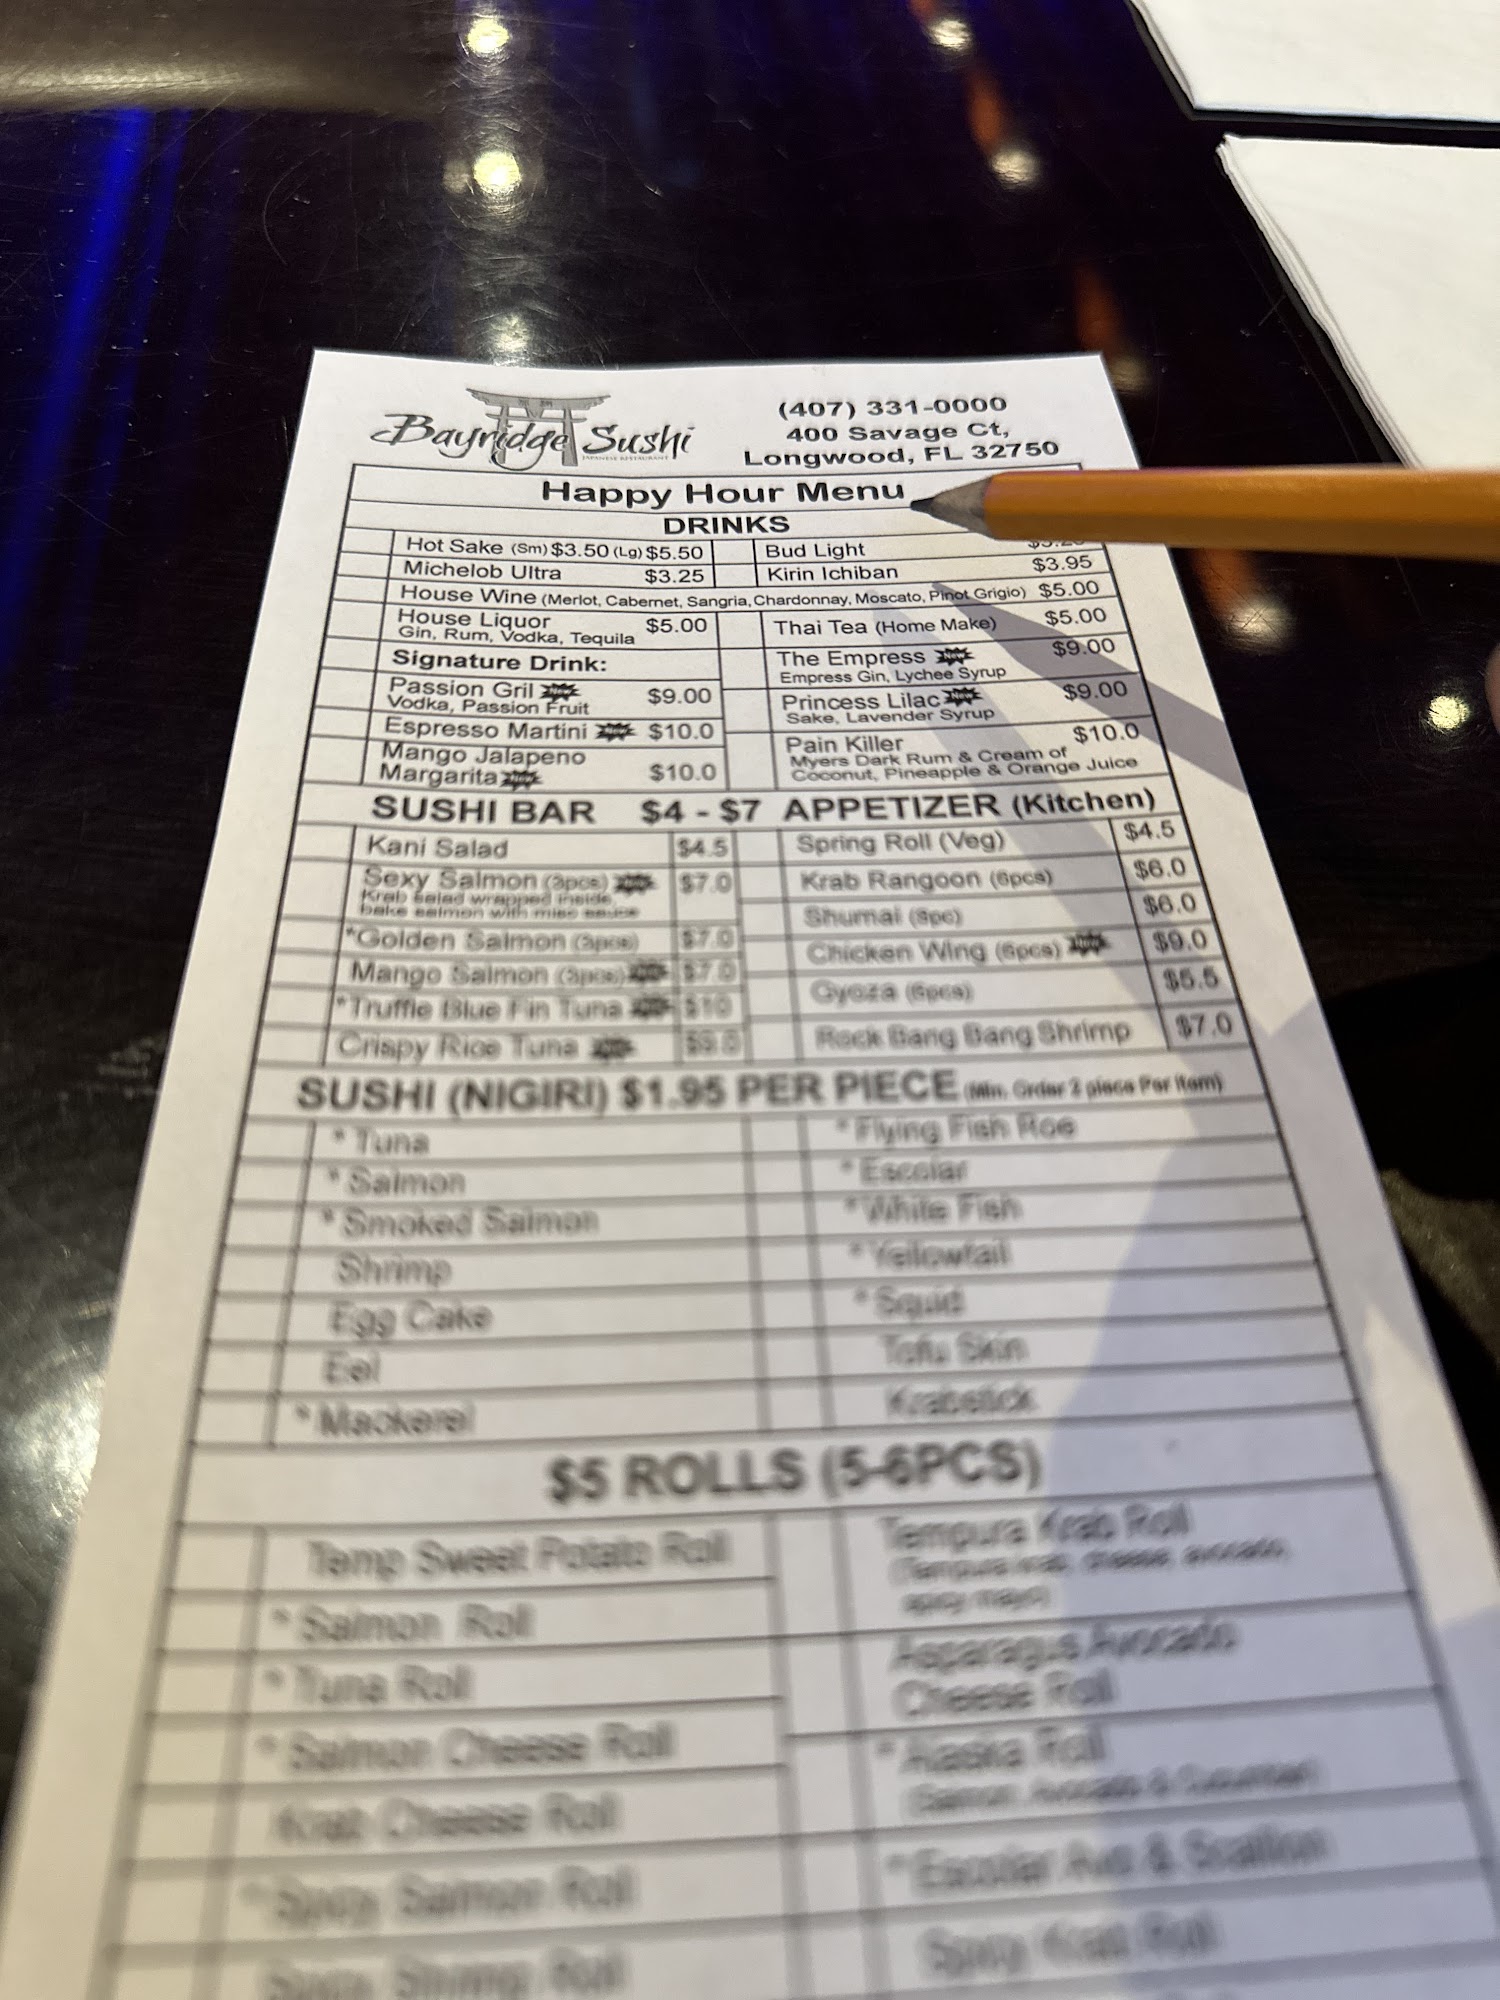 Bayridge Sushi
JAPANESE RESTAURANT
(407) 331-0000
400 Savage Ct,
Longwood, FL 32750
Happy Hour Menu
DRINKS
Hot Sake (Sm) $3.50 (Lg) $5.50
Bud Light
Michelob Ultra $3.25
Kirin Ichiban $3.95
House Wine (Merlot, Cabernet, Sangria, Chardonnay, Moscato, Pinot Grigio) $5.00
House Liquor $5.00
Gin, Rum, Vodka, Tequila
Thai Tea (Home Make) $5.00
Signature Drink:
The Empress New $9.00
Empress Gin, Lychee Syrup
Passion Gril New $9.00
Vodka, Passion Fruit
Princess Lilac New $9.00
Sake, Lavender Syrup
Espresso Martini New $10.0
Mango Jalapeno
Margarita New $10.0
Pain Killer $10.0
Myers Dark Rum & Cream of
Coconut, Pineapple & Orange Juice
SUSHI BAR $4 - $7 APPETIZER (Kitchen)
Kani Salad $4.5
Spring Roll (Veg) $4.5
Sexy Salmon (3pcs) New $7.0
Krab salad wrapped inside,
bake salmon with miso sauce
Krab Rangoon (6pcs) $6.0
Shumai (8pc) $6.0
*Golden Salmon (3pcs) $7.0
Chicken Wing (6pcs) New $9.0
Mango Salmon (3pcs) New $7.0
Gyoza (6pcs) $5.5
*Truffle Blue Fin Tuna New $10
Crispy Rice Tuna New $9.0
Rock Bang Bang Shrimp $7.0
SUSHI (NIGIRI) $1.95 PER PIECE (Min. Order 2 piece Per Item)
* Tuna
* Flying Fish Roe
* Salmon
* Escolar
* Smoked Salmon
* White Fish
Shrimp
* Yellowtail
Egg Cake
* Squid
Eel
Tofu Skin
* Mackerel
Krabstick
$5 ROLLS (5-6PCS)
Temp Sweet Potato Roll
Tempura Krab Roll
(Tempura krab, cheese, avocado,
spicy mayo)
* Salmon Roll
Asparagus Avocado
Cheese Roll
* Tuna Roll
* Salmon Cheese Roll
* Alaska Roll
(Salmon, Avocado & Cucumber)
Krab Cheese Roll
* Escolar Avo & Scallion
* Spicy Salmon Roll
Spicy Krab Roll
Spicy Shrimp Roll